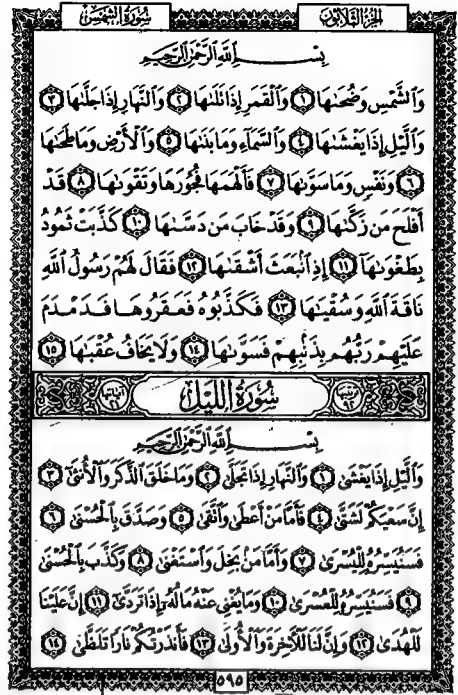 الجزء الثلاثون
سورة الشمس
بِسْمِ اللَّهِ الرَّحْمَٰنِ الرَّحِيمِ
وَالشَّمْسِ وَضُحَىٰهَا ١ وَالْقَمَرِ إِذَا تَلَىٰهَا ٢ وَالنَّهَارِ إِذَا جَلَّىٰهَا ٣
وَاللَّيْلِ إِذَا يَغْشَىٰهَا ٤ وَالسَّمَآءِ وَمَا بَنَىٰهَا ٥ وَالْأَرْضِ وَمَا طَحَىٰهَا
٦ وَنَفْسٍ وَمَا سَوَّىٰهَا ٧ فَأَلْهَمَهَا فُجُورَهَا وَتَقْوَىٰهَا ٨ قَدْ
أَفْلَحَ مَن زَكَّىٰهَا ٩ وَقَدْ خَابَ مَن دَسَّىٰهَا ١٠ كَذَّبَتْ ثَمُودُ
بِطَغْوَىٰهَآ ١١ إِذِ انۢبَعَثَ أَشْقَىٰهَا ١٢ فَقَالَ لَهُمْ رَسُولُ اللَّهِ
نَاقَةَ اللَّهِ وَسُقْيَٰهَا ١٣ فَكَذَّبُوهُ فَعَقَرُوهَا فَدَمْدَمَ
عَلَيْهِمْ رَبُّهُم بِذَنۢبِهِمْ فَسَوَّىٰهَا ١٤ وَلَا يَخَافُ عُقْبَٰهَا ١٥
ترتيبها ٩٢ سورة الليل آياتها ٢١
بِسْمِ اللَّهِ الرَّحْمَٰنِ الرَّحِيمِ
وَاللَّيْلِ إِذَا يَغْشَىٰ ١ وَالنَّهَارِ إِذَا تَجَلَّىٰ ٢ وَمَا خَلَقَ الذَّكَرَ وَالْأُنثَىٰٓ ٣
إِنَّ سَعْيَكُمْ لَشَتَّىٰ ٤ فَأَمَّا مَنْ أَعْطَىٰ وَاتَّقَىٰ ٥ وَصَدَّقَ بِالْحُسْنَىٰ ٦
فَسَنُيَسِّرُهُۥ لِلْيُسْرَىٰ ٧ وَأَمَّا مَنۢ بَخِلَ وَاسْتَغْنَىٰ ٨ وَكَذَّبَ بِالْحُسْنَىٰ
٩ فَسَنُيَسِّرُهُۥ لِلْعُسْرَىٰ ١٠ وَمَا يُغْنِي عَنْهُ مَالُهُۥٓ إِذَا تَرَدَّىٰٓ ١١ إِنَّ عَلَيْنَا
لَلْهُدَىٰ ١٢ وَإِنَّ لَنَا لَلْآخِرَةَ وَالْأُولَىٰ ١٣ فَأَنذَرْتُكُمْ نَارًا تَلَظَّىٰ ١٤
٥٩٥